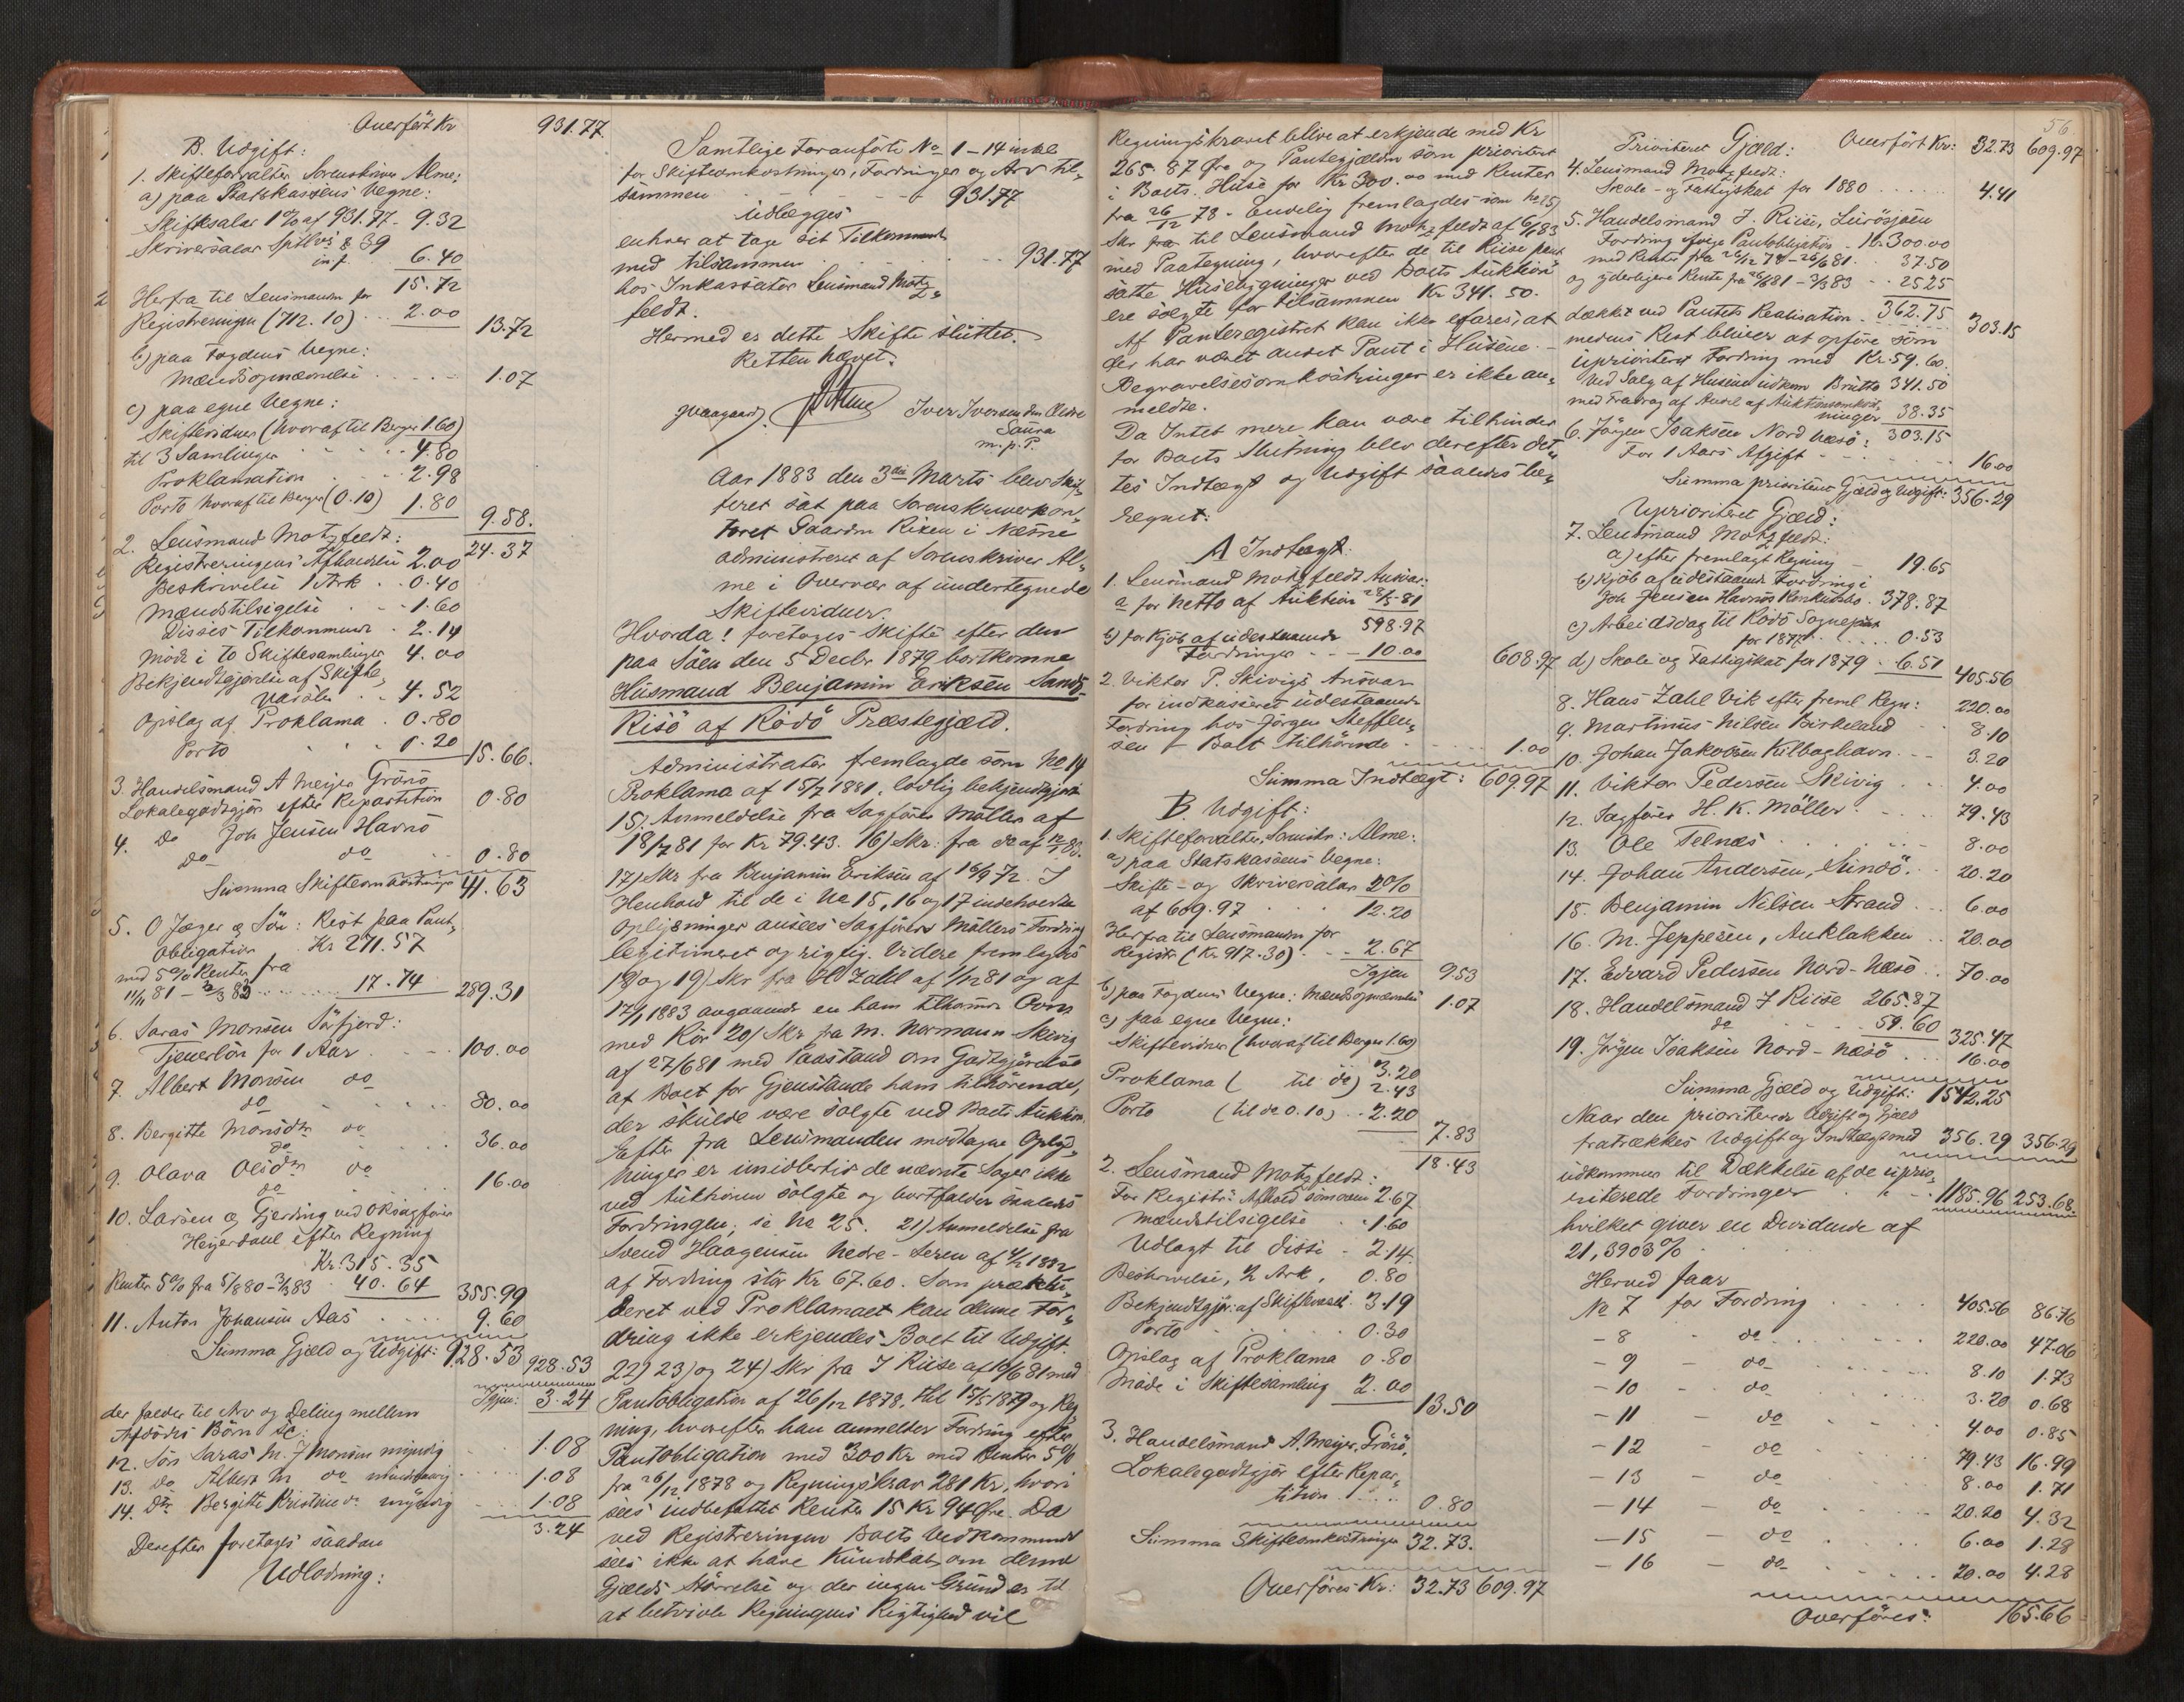 Overført Kr 931.77.
B. Udgift:
1. Skifteforvalter Sorenskriver Alme:
a) paa Statskassens Vegne:
Skiftesalar 1% af 931.77 - 9.32
Skriversalar Sptlvs § 39
6.40
15.72
Herfra til Lensmanden for
Registreringen (712.10) .. 2.00 13.72
b) paa Fogdens Vegne:
Mændsopnævnelse .... 1.07
c) paa egne Vegne:
Skiftevidner (hvoraf til Berger 1.60)
til 3 Samlinger .... 4.80
Proklamation .. 2.98
Porto hvoraf til Berger (0.10) 1.80 9.58.
24.37
2. Lensmand Motzfeldt:
Registreringens Afholdelse 2.00
Beskrivelse 1 Ark .. 0.40
Mændstilsigelse .. 1.60
Disses Tilkommende . 2.14
Møde i to Skiftesamlinger 4.00
Bekjendtgjørelse af Skifte-
varsler .. 4.52
Opslag af Proklama . 0.80
Porto . . . 0.20 15.66.
3. Handelsmand A Meyer Grønø
Lokalegodtgjør efter Repartition 0.80
4. do Joh Jensen Havnø
do do .. 0.80
Summa Skifteomkostninger 41.63
5. O Jæger & Søn: Rest paa Pant-
Obligation Kr 271.57
med 5% Renter fra
11/11 81 - 3/3 83 .... 17.74 289.31
6. Saras Monsen Sørfjord:
Tjenerløn for 1 Aar .... 100.00
7. Albert Monsen do
do .... 80.00
8. Bergitte Monsdtr do
do 36.00
9. Olava Olsdtr do
do 16.00
10. Larsen & Gjerding ved Oksagfører
Heyerdahl efter Regning
Kr. 315.35
Renter 5% fra 5/8 80 - 3/3 83 . 40.64 355.99
11. Anton Johansen Aas .... 9.60
Summa Gjæld og Udgift: 928.53 928.53
Igjen: 3.24
der falder til Arv og Deling mellem
Afdødes Børn sc:
12. Søn Saras M. J Monsen myndig .. 1.08
13. do Albert M do mindreaarig .. 1.08
14. Dtr Bergitte Kristine do myndig .. 1.08
3.24
Derefter foretages saadan
Udlodning:
Samtlige Foranførte No 1 - 14 inkl
for Skifteomkostninger, Fordringer og Arv til-
sammen - - - 931.77
udlægges
enhver at tage sit Tilkommende
med tilsammen .... 931.77
hos Inkassator Lensmand Motz-
feldt.
Hermed er dette Skifte sluttet.
Retten hævet.
Iver Iversen den Ældre
Saura
m. p. P.
Aar 1883 den 3die Marts blev Skif-
teret sat paa Sorenskriverkon-
toret Gaarden Rixen i Næsne
administreret af Sorenskriver Al-
me i Overvær af undertegnede
Skiftevidner.
Hvorda! foretoges Skifte efter den
paa Søen den 5 Decbr 1879 bortkomne
Husmand Benjamin Eriksen Sand-
Risø af Rødø Præstegjæld.
Administrator fremlagde som No 14
Proklama af 15/7 1881, lovlig bekjendtgjort
15) Anmeldelse fra Sagfører Møller af
18/7 81 for Kr 79.43. 16) Skr: fra do af 12/ 83.
17) Skr fra Benjamin Eriksen af 16/9 72. I
Henhold til de i No 15, 16 og 17 indeholdte
Oplysninger ansees Sagfører Møllers Fordring
legitimeret og rigtig. Videre fremlagdes
18) og 19) Skr fra H Zahl af 1/12 81 og af
17/1 1883 angaaende en ham tilkommende Ovn
med Rør 20) Skr fra M. Normann Skivig
af 27/6 81 med Paastand om Godtgjørelse
af Boet for Gjenstande ham tilhørende,
der skulde være solgte ved Boets Auktion.
Efter fra Lensmanden modtagne Oplys-
ninger er imidlertid de nævnte Sager ikke
ved Auktionen solgte og bortfalder saaledes
Fordringen, se No 25. 21) Anmeldelse fra
Svend Haagensen Nedre-Seren af 4/2 1882
af Fordring stor Kr 67.60. Som præklu-
deret ved Proklamaet kan denne For-
dring ikke erkjendes Boet til Udgift.
22) 23) og 24) Skr fra J Riise af 10/6 81 med
Pantobligation af 26/12 1878, thl 15/5 1879 og Reg
ning, hvorefter han anmelder Fordring efter
Pantobligation med 300 Kr med Renter 5%
fra 26/12 1878 og Regningskrav 281 Kr, hvori
sees indbefattet Renter 15 Kr 94 Øre. Da
ved Registreringen Boets Vedkommende
sees ikke at have Kundskab om denne
Gjælds Størrelse og der ingen Grund er til
at betvivle Regningens Rigtighed vil
56.
Regningskravet blive at erkjende med Kr
265.87 Øre og Pantegjælden som prioriteret
i Boets Huse for Kr 300.00 med Renter
fra 26/12 78. Endelig fremlagdes som No 25)
Skr fra til Lensmand Motzfeldt af 6/1 83
med Paategning, hvorefter de til Riise pant
satte Husebygninger ved Boets Auktion
ere solgte for tilsammen Kr 341.50.
Af Panteregistret kan ikke erfares, at
der har været andet Pant i Husene.
Begravelsesomkostninger er ikke an-
meldte.
Da Intet mere kan være tilhinder
for Boets Slutning blev derefter det-
tes Indtægt og Udgift saaledes be-
regnet:
A Indtægt:
1. Lensmand Motzfeldt Ansvar:
a for Netto af Auktion 28/5 81
598.97
b) for Kjøb af udestaaende
Fordringer - - 10.00 608.97
2. Viktor P. Skivigs Ansvar
for indkasseret udestaaende
Fordring hos Jørgen Steffen-
sen Boet tilhørende .... 1.00
Summa Indtægt: 609.97
B. Udgift:
1. Skifteforvalter, Sorenskr: Alme:
a) paa Statskassens Vegne:
Skifte- og Skriversalar 2%
af 609.97 .. 12.20
Herfra til Lensmanden for
Registr (Kr. 917.30) .. 2.67
Igjen 9.53
b) paa Fogdens Vegne: Mændsopnævnelse 1.07
c) paa egne Vegne:
Skiftevidner (hvoraf til Berger 1.60)
3.20
Proklama ( til do) 2.43
Porto (til do 0.10) .. 2.20
7.83
18.43
2. Lensmand Motzfeldt:
For Registr: Afhold som oven 2.67
Mændstilsigelse .. 1.60
Udlagt til disse - 2.14.
Beskrivelse, 2 Ark, 0.80
Bekjendtgjør: af Skiftevarsel. 3.19
Porto .... 0.30
Opslag af Proklama 0.80
Møde i Skiftesamling 2.00
13.50
3. Handelsmand A. Meyer, Grønø,
Lokalegodtgjør efter Repar-
tition .... 0.80
Summa Skifteomkostninger 32.73.
Overføres Kr: 32.73 609.97
Prioriteret Gjæld: Overført Kr: 32.73 609.97
4. Lensmand Motzfeldt:
Skole- og Fattigskat for 1880 .... 4.41
5. Handelsmand J. Riise, Lurøsjøen
Fordring ifølge Pantobligation - Kr 300.00
med Renter fra 26/12 78 - 26/6 81 .. 37.50
og yderligere Rente fra 26/6 81 - 3/3 83 .. 25.25
362.75
dækket ved Pantets Realisation . . . 303.15
medens Rest bliver at opføre som
uprioriteret Fordring med Kr. 59.60.
Ved Salg af Husene udkom Brutto 341.50
med Fradrag af Andel af Auktionsomkost-
ninger 38.35
303.15
6. Jørgen Isaksen Nord Næsø:
For 1 Aars Afgift - - - 16.00
Summa prioriteret Gjæld og Udgift: 356.29
Uprioriteret Gjæld:
7. Lensmand Motzfeldt:
a) efter fremlagt Regning - 19.65
b) Kjøb af udestaaende Fordring i
Joh Jensen Havnøs Konkursbo . 378.87
c) Arbeidsdag til Rødø Sogneprest
for 1879 .... 0.53
d) Skole og Fattigskat for 1879 . 6.51 405.56
8. Hans Zahl Vik efter freml Regn: 220.00
9. Martinus Nilsen Birkeland 8.10
10. Johan Jakobsen Kilboghavn - - 3.20
11. Viktor Pedersen Skivig . . 4.00
12. Sagfører H. K. Møller . . . 79.43
13. Ole Telnæs .... 8.00
14. Johan Andersen, Sundø . . 20.20
15. Benjamin Nilsen Strand . . 6.00
16. M. Jeppesen, Auklakken . . 20.00
17. Edvard Pedersen Nord-Næsø . . 70.00
18. Handelsmand J Riise 265.87
do 59.60 325.47
19. Jørgen Isaksen Nord-Næsø . . . 16.00
Summa Gjæld og Udgift: 1542.25
Naar den prioriterede Udgift og Gjæld
fratrækkes Udgift og Indtægt med 356.29 356.29
udkommer til Dækkelse af de uprio-
riterede Fordringer . . . 1185.96 253.68.
hvilket giver en Dividende af
21,3903%
Herved faar
No 7 for Fordring .... 405.56 86.76
- 8 do .... 220.00 47.06
- 9 - do .... 8.10 1.73
- 10 - do 3.20 0.68
- 11 - do .... 4.00 0.85
- 12 - do 79.43 16.99
- 13 - do .... 8.00 1.71
- 14 - do .. 20.20 4.32
- 15 - do .. 6.00 1.28
- 16 - do .... 20.00 4.28
Overføres: 165.66